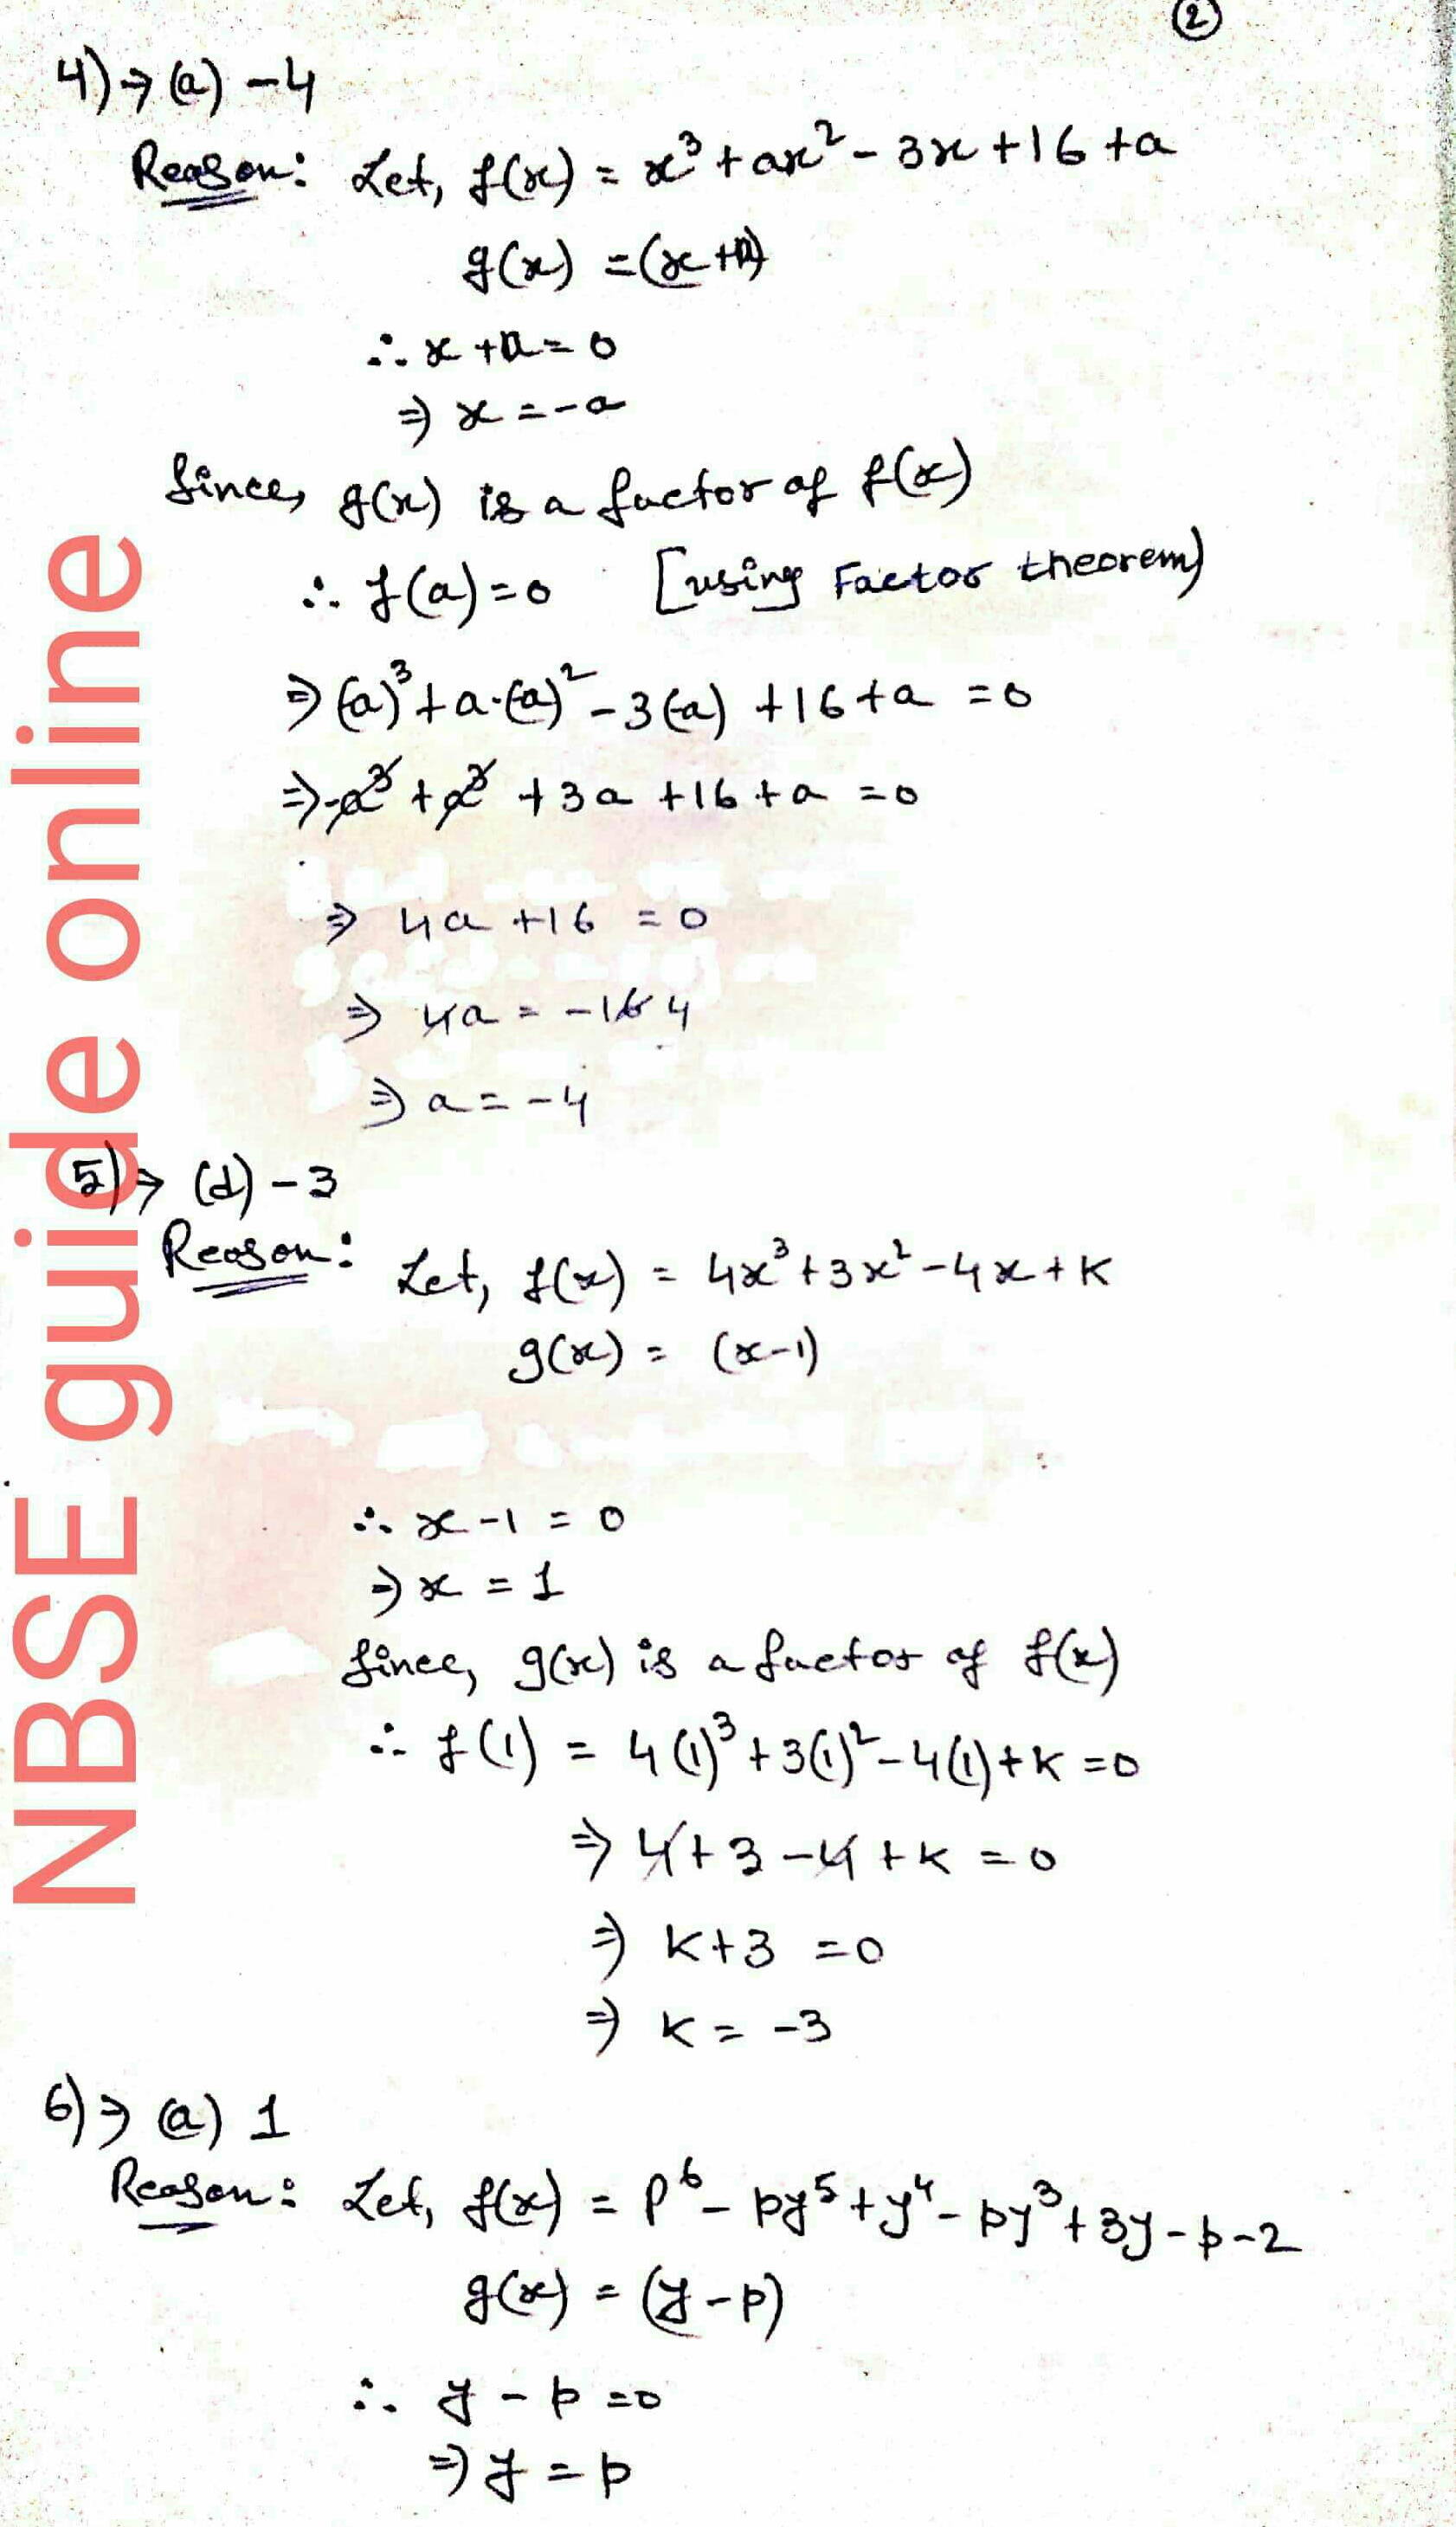 ②
4) → (a) -4
Reason: Let, f(x) = x³ + ax² - 3x + 16 + a
g(x) = (x + a)
∴ x + a = 0
⇒ x = -a
Since, g(x) is a factor of f(x)
∴ f(a) = 0 [using Factor theorem)
⇒ (-a)³ + a·(-a)² - 3(-a) + 16 + a = 0
⇒ -a³ + a³ + 3a + 16 + a = 0
⇒ 4a + 16 = 0
⇒ 4a = -16 4
⇒ a = -4
5) → (d) -3
Reason: Let, f(x) = 4x³ + 3x² - 4x + K
g(x) = (x-1)
∴ x - 1 = 0
⇒ x = 1
Since, g(x) is a factor of f(x)
∴ f(1) = 4(1)³ + 3(1)² - 4(1) + K = 0
⇒ 4 + 3 - 4 + K = 0
⇒ K + 3 = 0
⇒ K = -3
6) → (a) 1
Reason: Let, f(x) = p⁶ - py⁵ + y⁴ - py³ + 3y - p - 2
g(x) = (y - p)
∴ y - p = 0
⇒ y = p
NBSE guide online